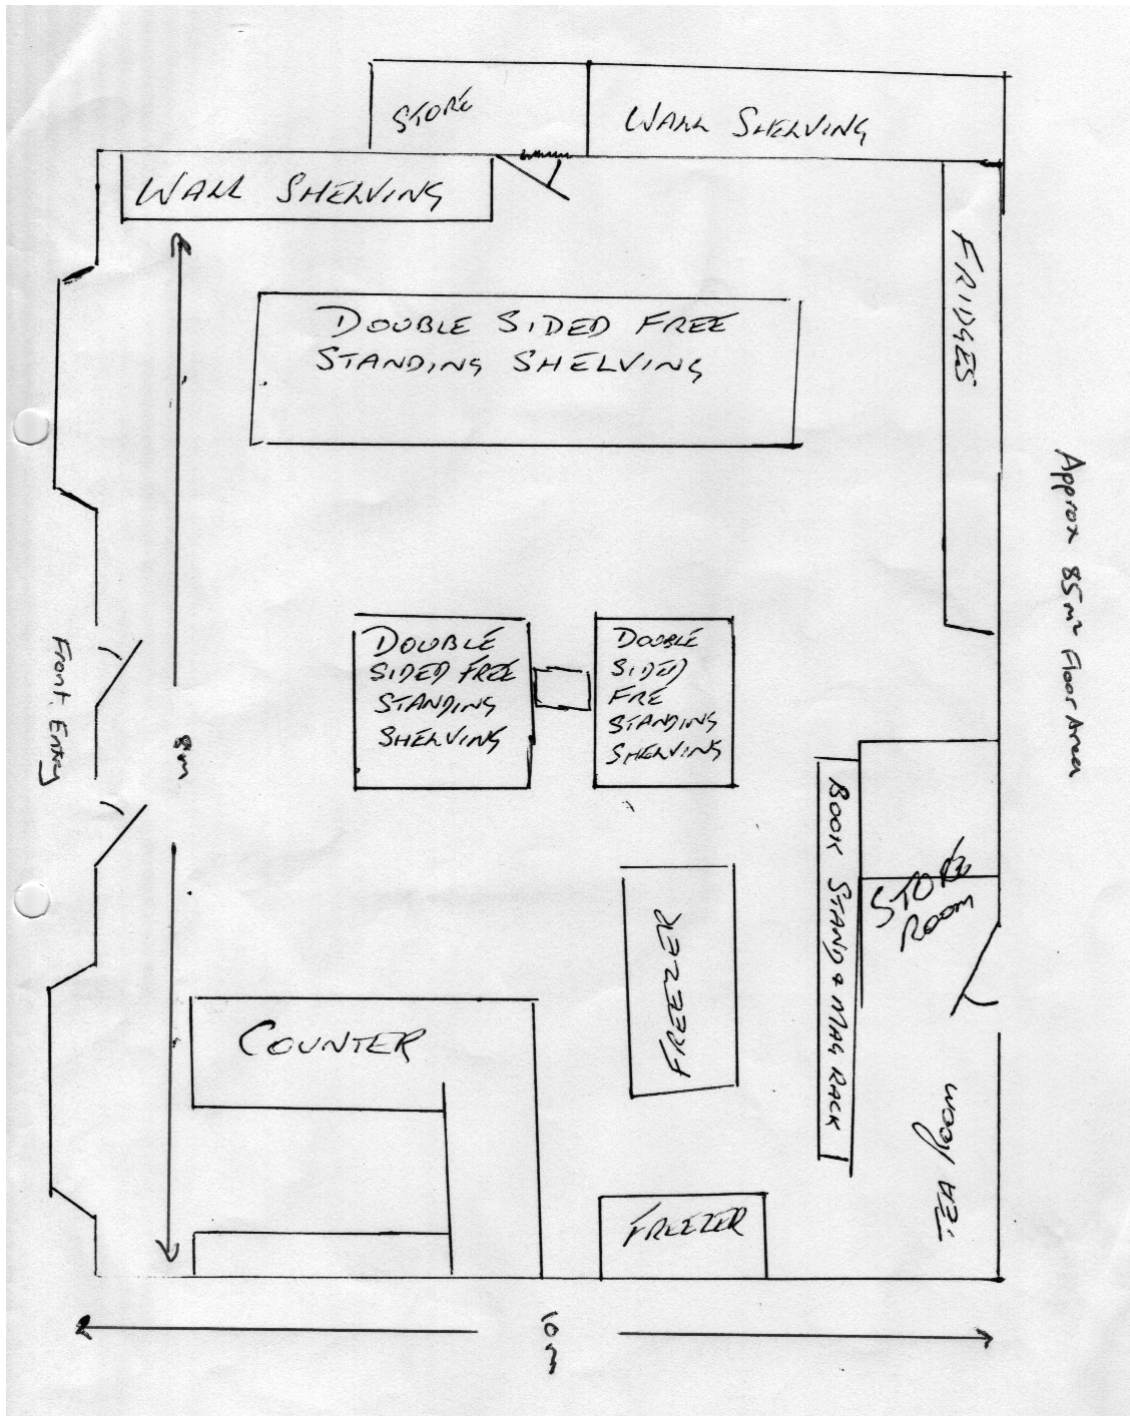 STORE
WALL SHELVING
WALL SHELVING
FRIDGES
DOUBLE SIDED FREE
STANDING SHELVING
Approx 85m² Floor Area
Front Entry
8m
DOUBLE
SIDED FREE
STANDING
SHELVING
DOUBLE
SIDED
FRE
STANDING
SHELVING
BOOK STAND & MAG RACK
STORE
ROOM
FREEZER
COUNTER
TEA ROOM
FREEZER
10m